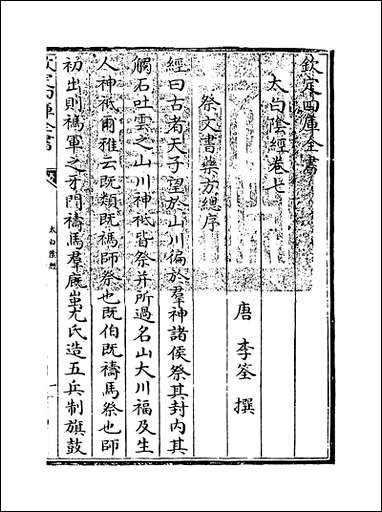 欽定四庫全書
太白陰經卷七
唐 李筌 撰
祭文書藥方總序
經曰古者天子望於山川徧於羣神諸侯祭其封内其
觸石吐雲之山川神祗皆祭并所過名山大川福及生
人神祗爾雅云既類既禡師祭也既伯既禱馬祭也師
初出則禡軍之牙門禱馬羣厩蚩尤氏造五兵制旗鼓
欽定四庫全書
太白陰經